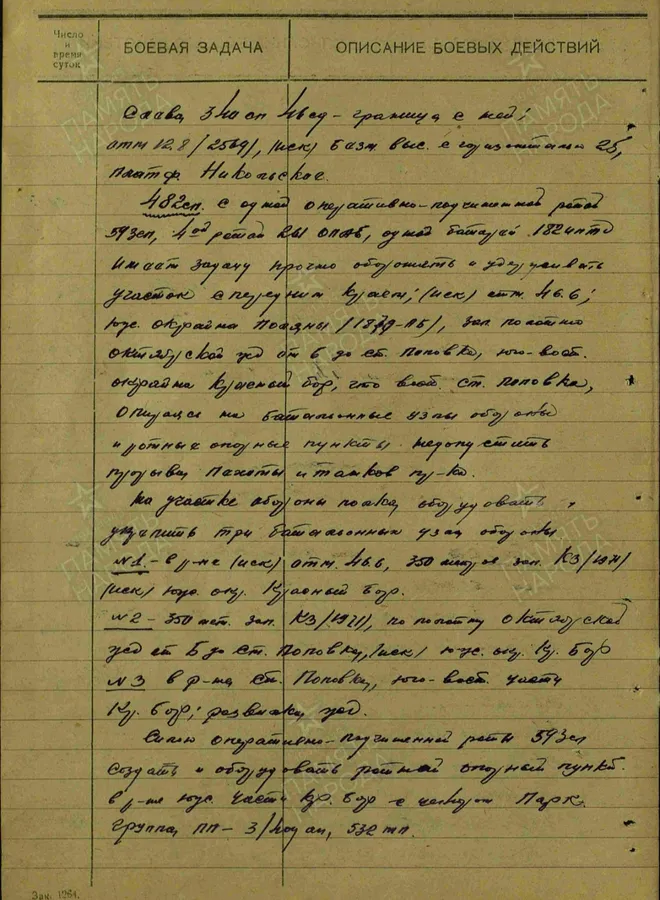 Число
и
время
суток
БОЕВАЯ ЗАДАЧА
ОПИСАНИЕ БОЕВЫХ ДЕЙСТВИЙ
Слева, граница с ней;
отм 12,8 /2569/, /иск/ выс. с горизонталью 25,
платф. Никольское.
482сп. с одной оперативно-подчиненной ротой
593сп, 4ой ротой одной батареей
Имеет задачу прочно оборонять и удерживать
участок с передним краем; /иск/ отм. 46.6;
юж. окраина зап. полотно
Октябрской жд от Б до ст. Поповка, юго-вост.
окраина Красный Бор, что вост. ст. Поповка,
Опираясь на батальонные узлы обороны
и ротные опорные пункты. Недопустить
прорыва пехоты и танков пр-ка.
На участке обороны полка, оборудовать,
укрепить три батальонных узла обороны
№1 - в р-не /иск/ отм. 46.6, 350 метров зап. КЗ /1971/
/иск/ юж. окр. Красный Бор.
№2 - 350 мет. зап. КЗ /1971/, по полотну Октябрской
жд от Б до ст. Поповка, /иск/ юж. окр. Кр. Бор
№3 в р-не ст. Поповка, юго-вост. часть
Кр. Бор; развилка жд.
Силою оперативно-подчиненной роты 593сп
создать и оборудовать ротный опорный пункт
в р-не юж. части Кр. Бор Парк.
Группа ПП-
Зак. 1281.
ПАМЯТЬ НАРОДА